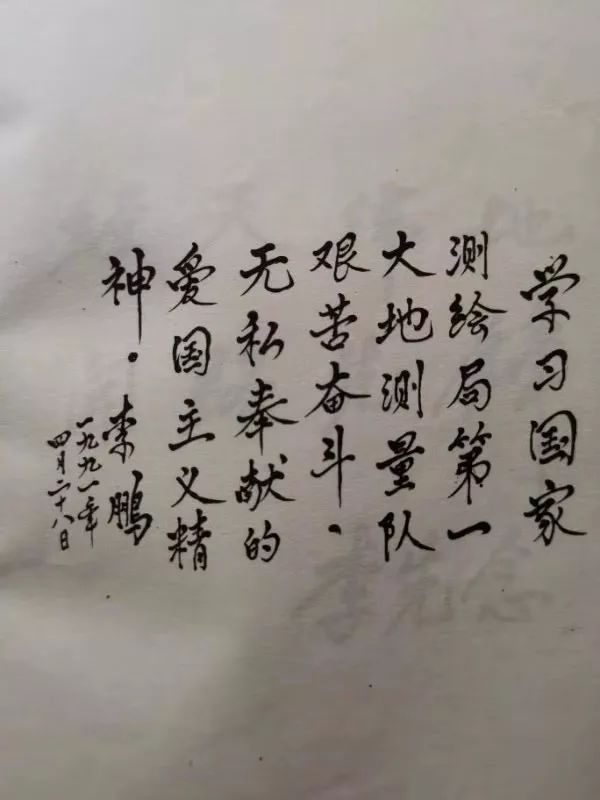 学习国家
测绘局第一
大地测量队
艰苦奋斗.
无私奉献的
爱国主义精
神.
李鹏
一九九一年
四月二十八日
李先念